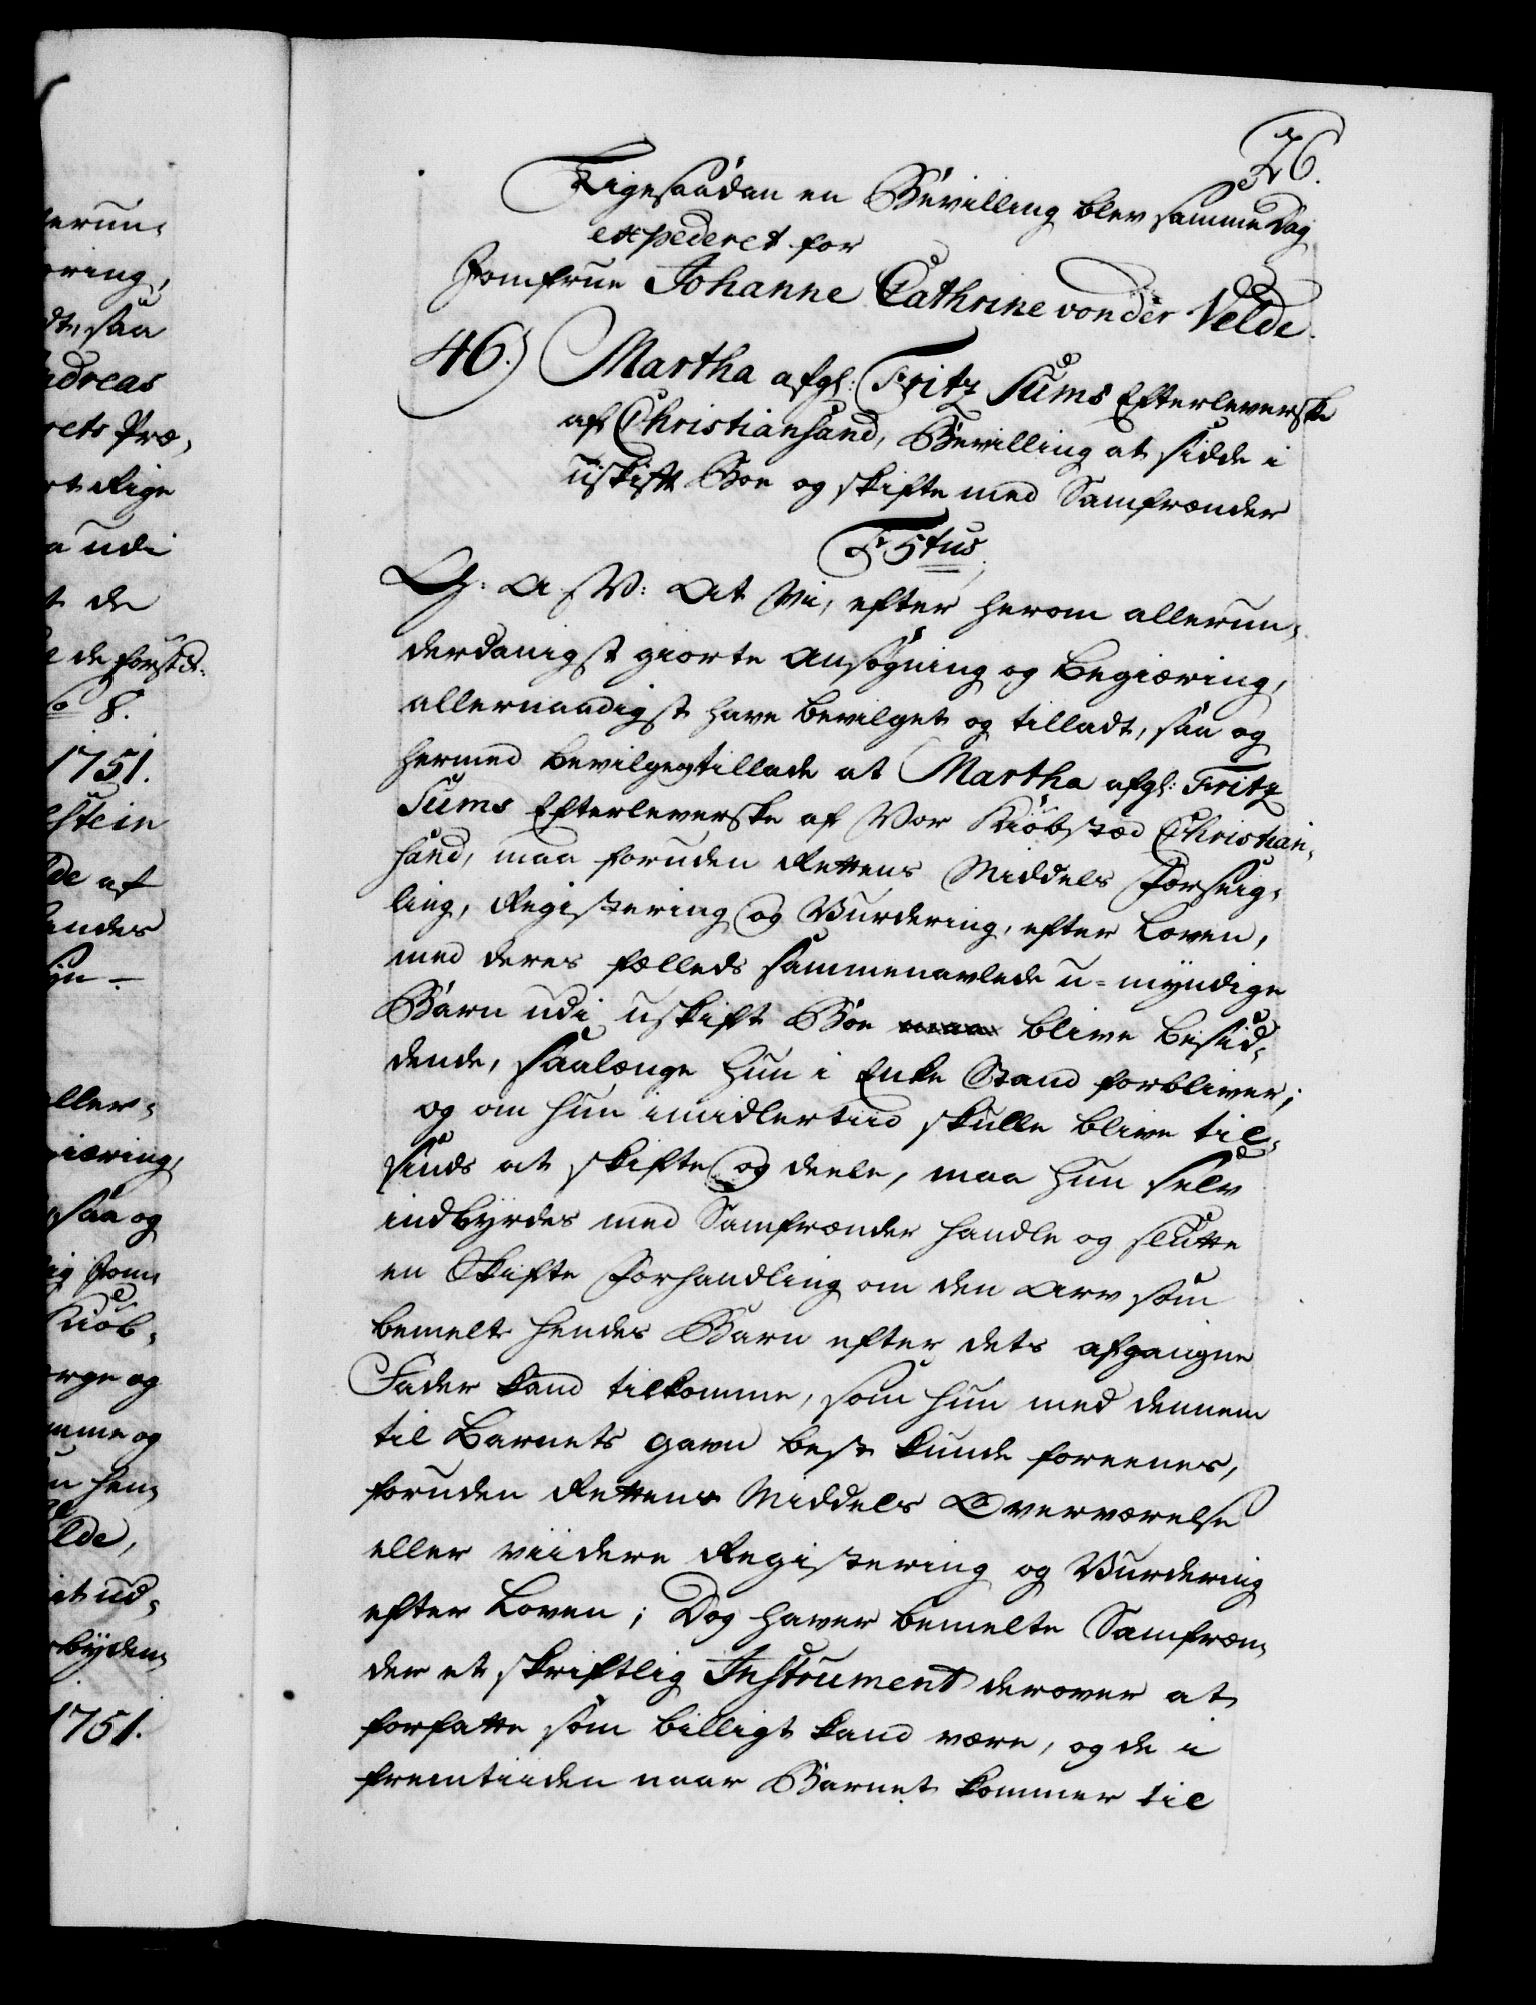 26.
Ligesaadan en Bevilling blev samme Dag
expederet for
Jomfrue Johanne Cathrine von der Velde.
46.) Martha afgl: Fritz Sums Efterleverske
af Christiansand, Bevilling at sidde i
uskift Boe og skifte med Samfrænder
F 5tus.
G: A W: At Vi, efter herom allerun-
derdanigst giorte Ansøgning og Begiæring,
allernaadigst have bevilget og tilladt, saa og
hermed bevilge og tillade at Martha afgl: Fritz
Sums Efterleverske af Vor Kiøbstæd Christian-
sand, maa foruden Rettens Middels Forseig-
ling, Registering og Vurdering, efter Loven,
med deres fælleds sammenavlede u-myndige
Barn udi uskift Boe blive besid-
dende, saalænge hun i Enke Stand forbliver;
og om hun imidlertiid skulle blive til-
sinds at skifte og deele, maa hun selv
indbyrdes med Samfrænder handle og slutte
en Skifte Forhandling om den Arv som
bemelte hendes Barn efter dets afgangne
Fader kand tilkomme, som hun med dennem
til Barnets gavn best kunde foreenes,
foruden Rettens Middels Overværelse
eller viidere Registering og Vurdering
efter Loven; Dog haver bemelte Samfræn-
der et skriftlig Instrument derover at
forfatte som billigt kand være, og de i
fremtiiden naar Barnet kommer til